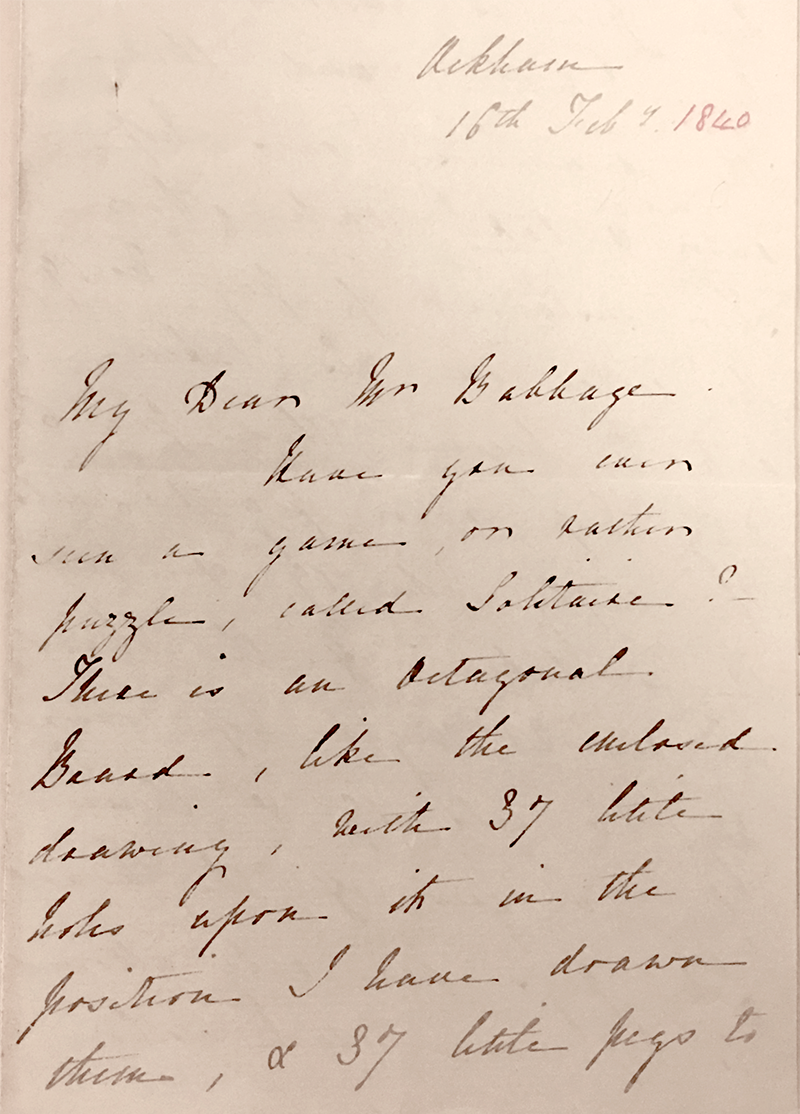 Ockham
16th Feby. 1840
My Dear Mr Babbage.
Have you ever
seen a game, or rather
puzzle, called Solitaire?
There is an Octagonal
Board, like the enclosed
drawing, with 37 little
holes upon it in the
position I have drawn
them, & 37 little pegs to